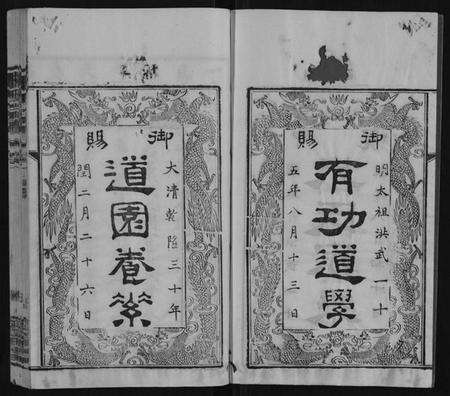 御賜
明太祖洪武一十
有功道學
五年八月十三日
御賜
大清乾隆三十年
道園養蒙
閏二月二十六日